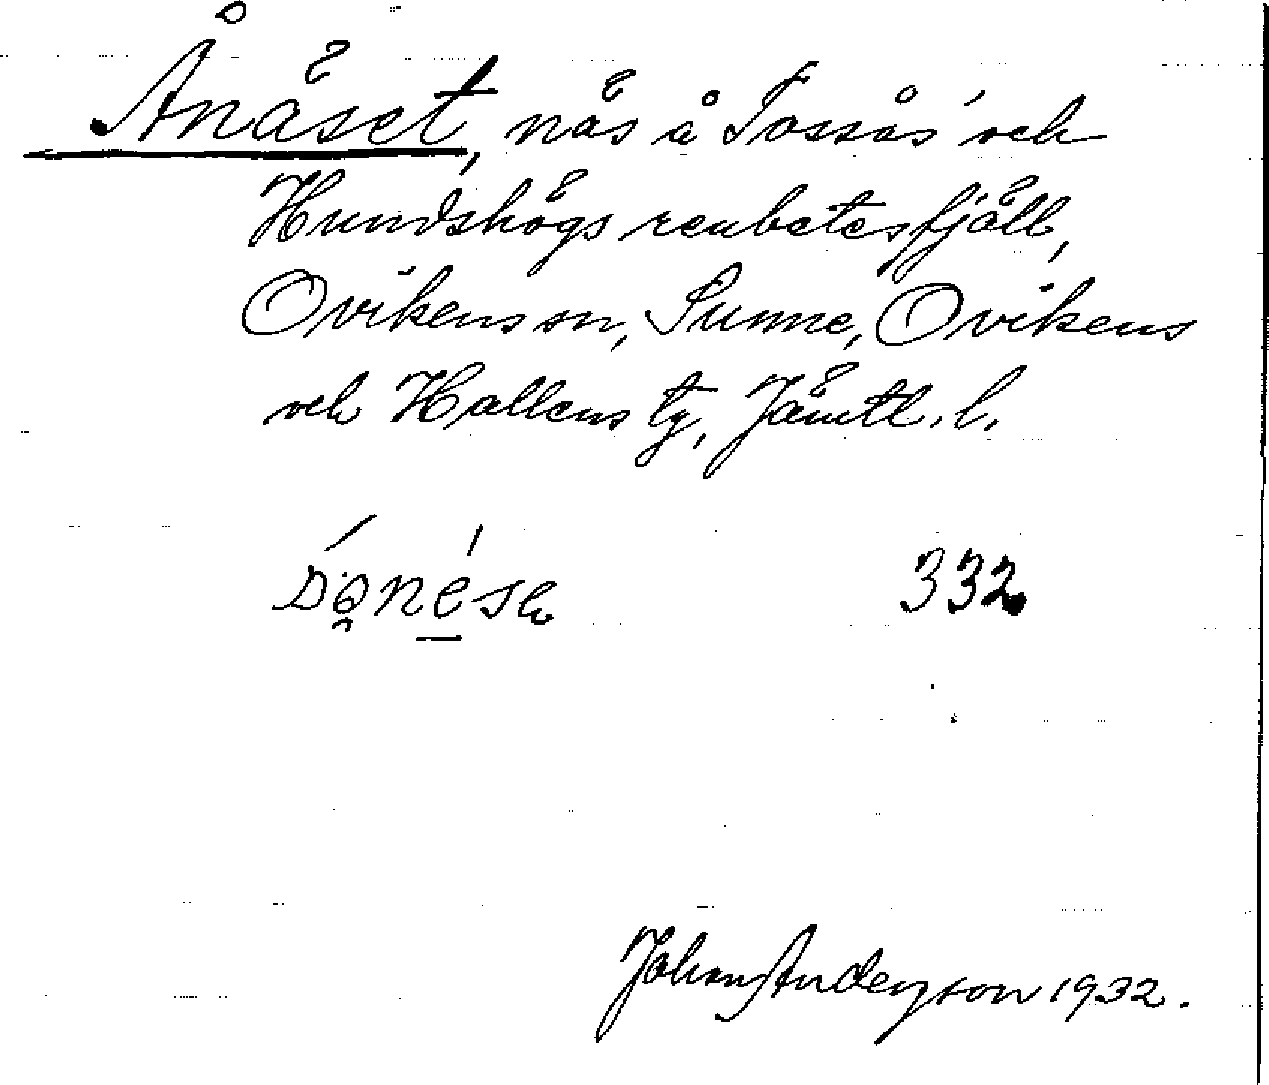 Ånäset, näs å Tossås och
Hundshögs renbetesfjäll,
Ovikens sn, Sunne, Ovikens
och Hallens tg, Jämtl. l.
332
Johan Anderson 1932.